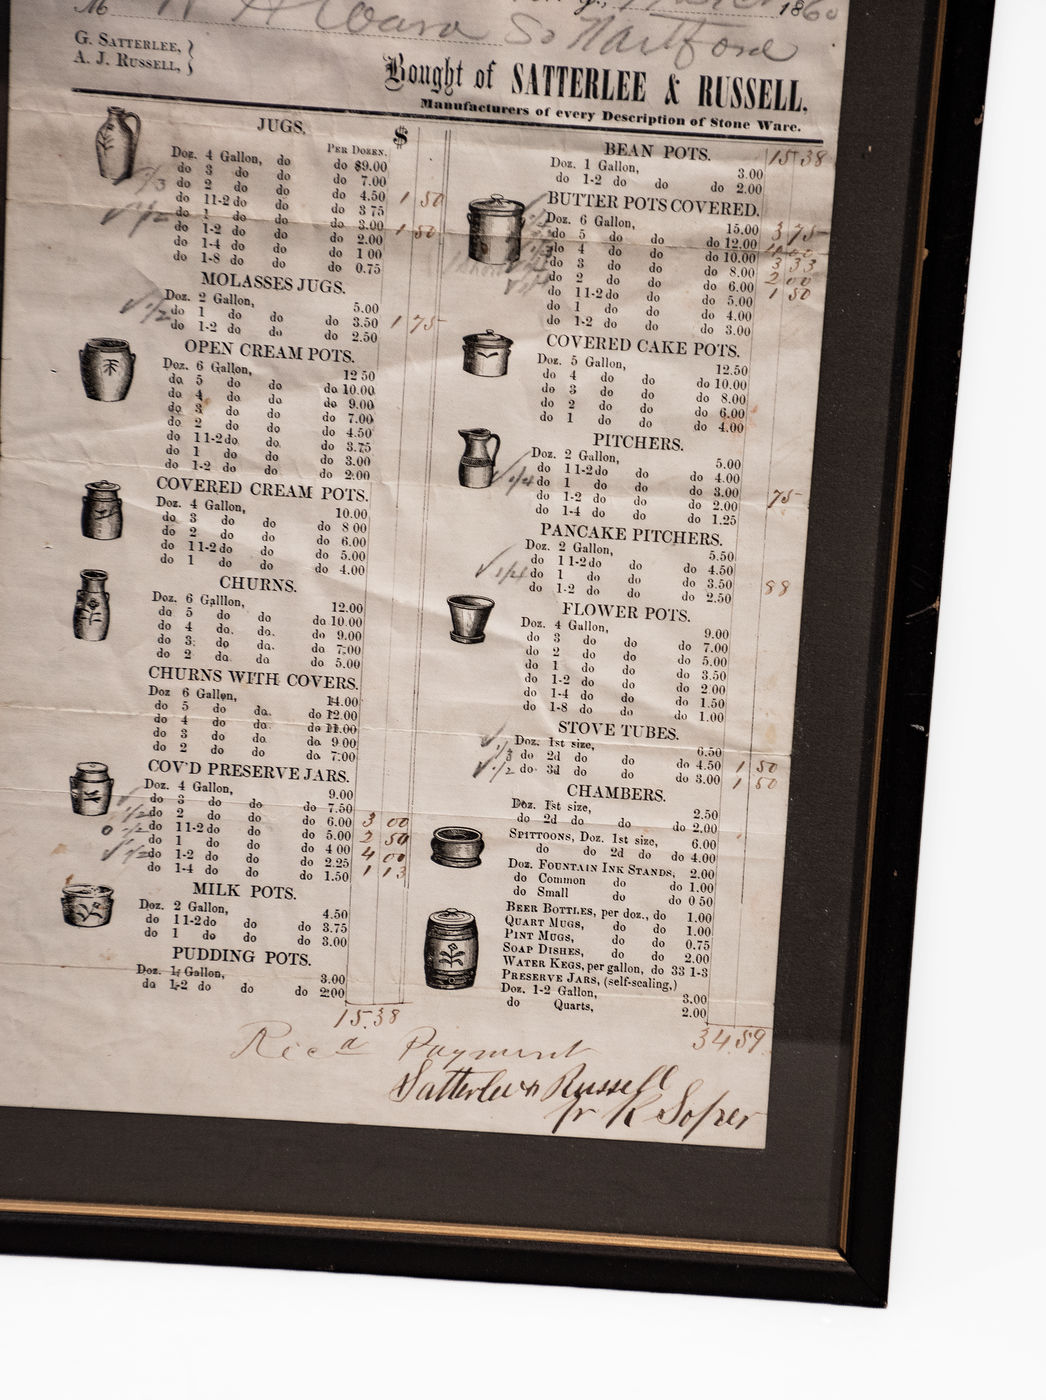 1860
So Hartford
G. Satterlee,
A. J. Russell,
Bought of SATTERLEE & RUSSELL.
Manufacturers of every Description of Stone Ware.
JUGS. $
Per Dozen.
Doz. 4 Gallon, do do $9.00
do 3 do do do 7.00
do 2 do do do 4.50 1 50
do 1 1-2 do do do 3 75
do 1 do do do 3.00 1 50
do 1-2 do do do 2.00
do 1-4 do do do 1 00
do 1-8 do do do 0.75
MOLASSES JUGS.
Doz. 2 Gallon, 5.00
do 1 do do do 3.50 1 75
do 1-2 do do do 2.50
OPEN CREAM POTS.
Doz. 6 Gallon, 12 50
do 5 do do do 10.00
do 4 do do do 9.00
do 3 do do do 7.00
do 2 do do do 4.50
do 1 1-2 do do do 3.75
do 1 do do do 3.00
do 1-2 do do do 2.00
COVERED CREAM POTS.
Doz. 4 Gallon, 10.00
do 3 do do do 8 00
do 2 do do do 6.00
do 1 1-2 do do do 5.00
do 1 do do do 4.00
CHURNS.
Doz. 6 Galllon, 12.00
do 5 do do do 10.00
do 4 do. da. do 9.00
do 3 do da. do 7.00
do 2 do. da do 5.00
CHURNS WITH COVERS.
Doz 6 Gallon, 14.00
do 5 do da. do 12.00
do 4 do da. do 11.00
do 3 do do da 9 00
do 2 do do da 7.00
COV'D PRESERVE JARS.
Doz. 4 Gallon, 9.00
do 3 do do do 7.50
do 2 do do do 6.00 3 00
do 1 1-2 do do do 5.00 2 50
do 1 do do do 4 00 4 00
do 1-2 do do do 2.25 1 13
do 1-4 do do do 1.50
MILK POTS.
Doz. 2 Gallon, 4.50
do 1 1-2 do do do 3.75
do 1 do do do 3.00
PUDDING POTS.
Doz. 1 Gallon, 3.00
do 1-2 do do do 2.00
15.38
BEAN POTS. 15 38
Doz. 1 Gallon, 3.00
do 1-2 do do do 2.00
BUTTER POTS COVERED.
Doz. 6 Gallon, 15.00 3 75
do 5 do do do 12.00
do 4 do do do 10.00 3 33
do 3 do do do 8.00 2 00
do 2 do do do 6.00 1 50
do 1 1-2 do do do 5.00
do 1 do do do 4.00
do 1-2 do do do 3.00
COVERED CAKE POTS.
Doz. 5 Gallon, 12.50
do 4 do do do 10.00
do 3 do do do 8.00
do 2 do do do 6.00
do 1 do do do 4.00
PITCHERS.
Doz. 2 Gallon, 5.00
do 1 1-2 do do do 4.00
1/4 do 1 do do do 3.00 75
do 1-2 do do do 2.00
do 1-4 do do do 1.25
PANCAKE PITCHERS.
Doz. 2 Gallon, 5.50
do 1 1-2 do do do 4.50
1/4 do 1 do do do 3.50 88
do 1-2 do do do 2.50
FLOWER POTS.
Doz. 4 Gallon, 9.00
do 3 do do do 7.00
do 2 do do do 5.00
do 1 do do do 3.50
do 1-2 do do do 2 00
do 1-4 do do do 1.50
do 1-8 do do do 1.00
STOVE TUBES.
Doz. 1st size, 6.50
1/3 do 2d do do do 4.50 1 50
1/2 do 3d do do do 3.00 1 50
CHAMBERS.
Doz. 1st size, 2.50
do 2d do do do 2.00
Spittoons, Doz. 1st size, 6.00
do do 2d do do 4.00
Doz. Fountain Ink Stands, 2.00
do Common do do 1.00
do Small do do 0 50
Beer Bottles, per doz., do 1.00
Quart Mugs, do do 1.00
Pint Mugs, do do 0.75
Soap Dishes, do do 2.00
Water Kegs, per gallon, do 33 1-3
Preserve Jars, (self-sealing,)
Doz. 1-2 Gallon, 3.00
do Quarts, 2.00
34.59
Recd Payment
Satterlee & Russell
pr K Soper